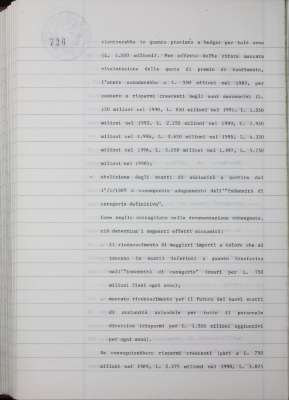 726
rientrerebbe in quanto previsto a budget per tale area
(L. 1.000 milioni). Per effetto della citata mancata
rivalutazione della quota di premio di rendimento,
l'onere scenderebbe a L. 550 milioni nel 1989, per
passare a risparmi crescenti negli anni successivi (L.
150 milioni nel 1990, L. 850 milioni nel 1991, L. 1.550
milioni nel 1992, L. 2.250 milioni nel 1993, L. 2.950
milioni nel 1994, L. 3.650 milioni nel 1995, L. 4.350
milioni nel 1996, L. 5.050 milioni nel 1997, L. 5.750
milioni nel 1998);
- abolizione degli scatti di anzianità a partire dal
1°/1/1989 e conseguente adeguamento dell'"indennità di
categoria definitiva".
Come meglio dettagliato nella documentazione consegnata,
ciò determina i seguenti effetti economici:
. il riconoscimento di maggiori importi a coloro che si
trovano in scatti inferiori a quanto trasferito
nell'"indennità di categoria" (oneri per L. 750
milioni fissi ogni anno);
. mancato riconoscimento per il futuro dei nuovi scatti
di anzianità aziendale per tutto il personale
direttivo (risparmi per L. 1.500 milioni aggiuntivi
per ogni anno).
Ne conseguirebbero risparmi crescenti (pari a L. 750
milioni nel 1989, L. 2.275 milioni nel 1990, L. 3.825